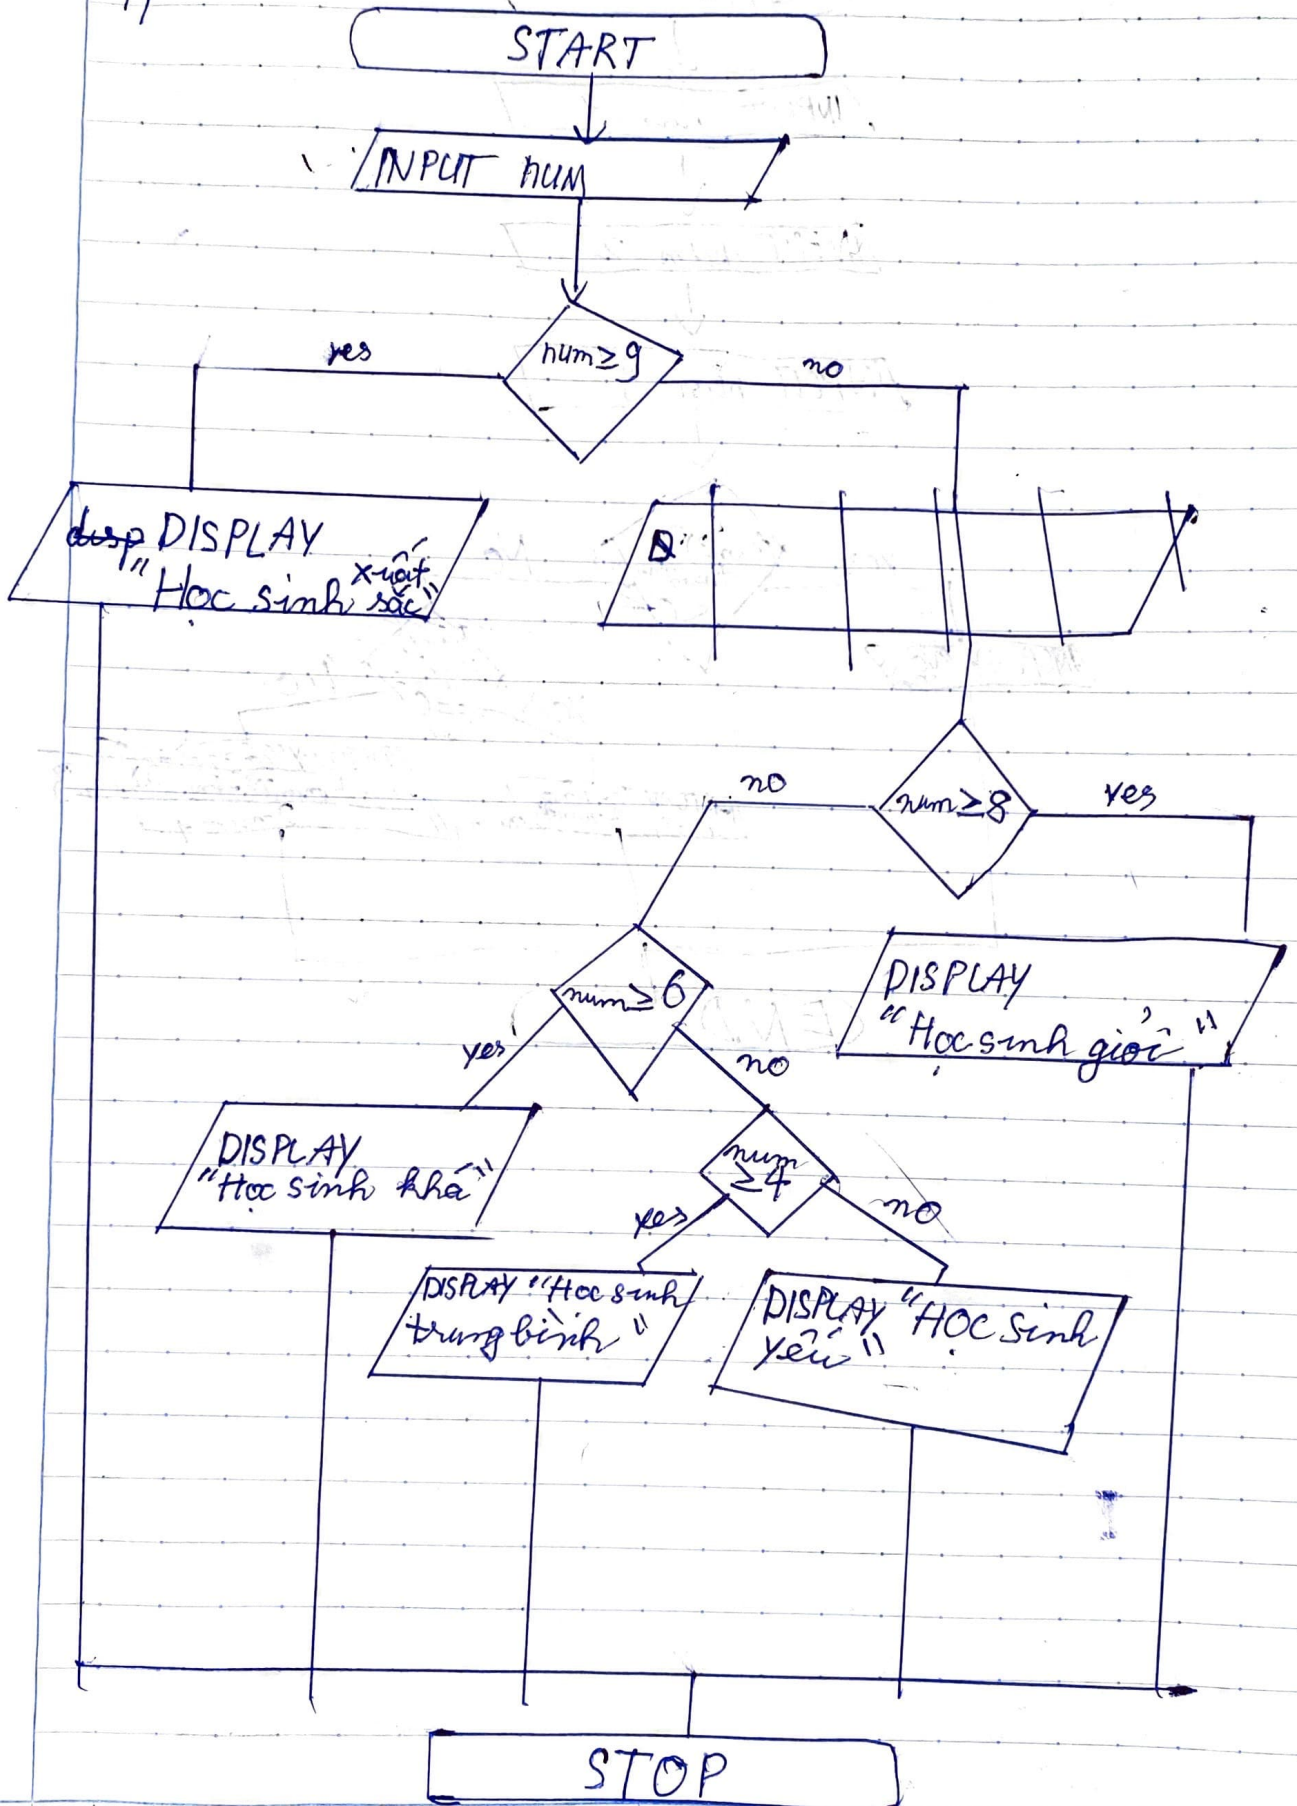 START
INPUT num
num ≥ 9
yes
no
DISPLAY
"Học sinh xuất sắc"
num ≥ 8
no
yes
num ≥ 6
DISPLAY
"Học sinh giỏi"
yes
no
DISPLAY
"Học sinh khá"
num
≥ 4
yes
no
DISPLAY "Học sinh
trung bình"
DISPLAY "Học sinh
yếu"
STOP